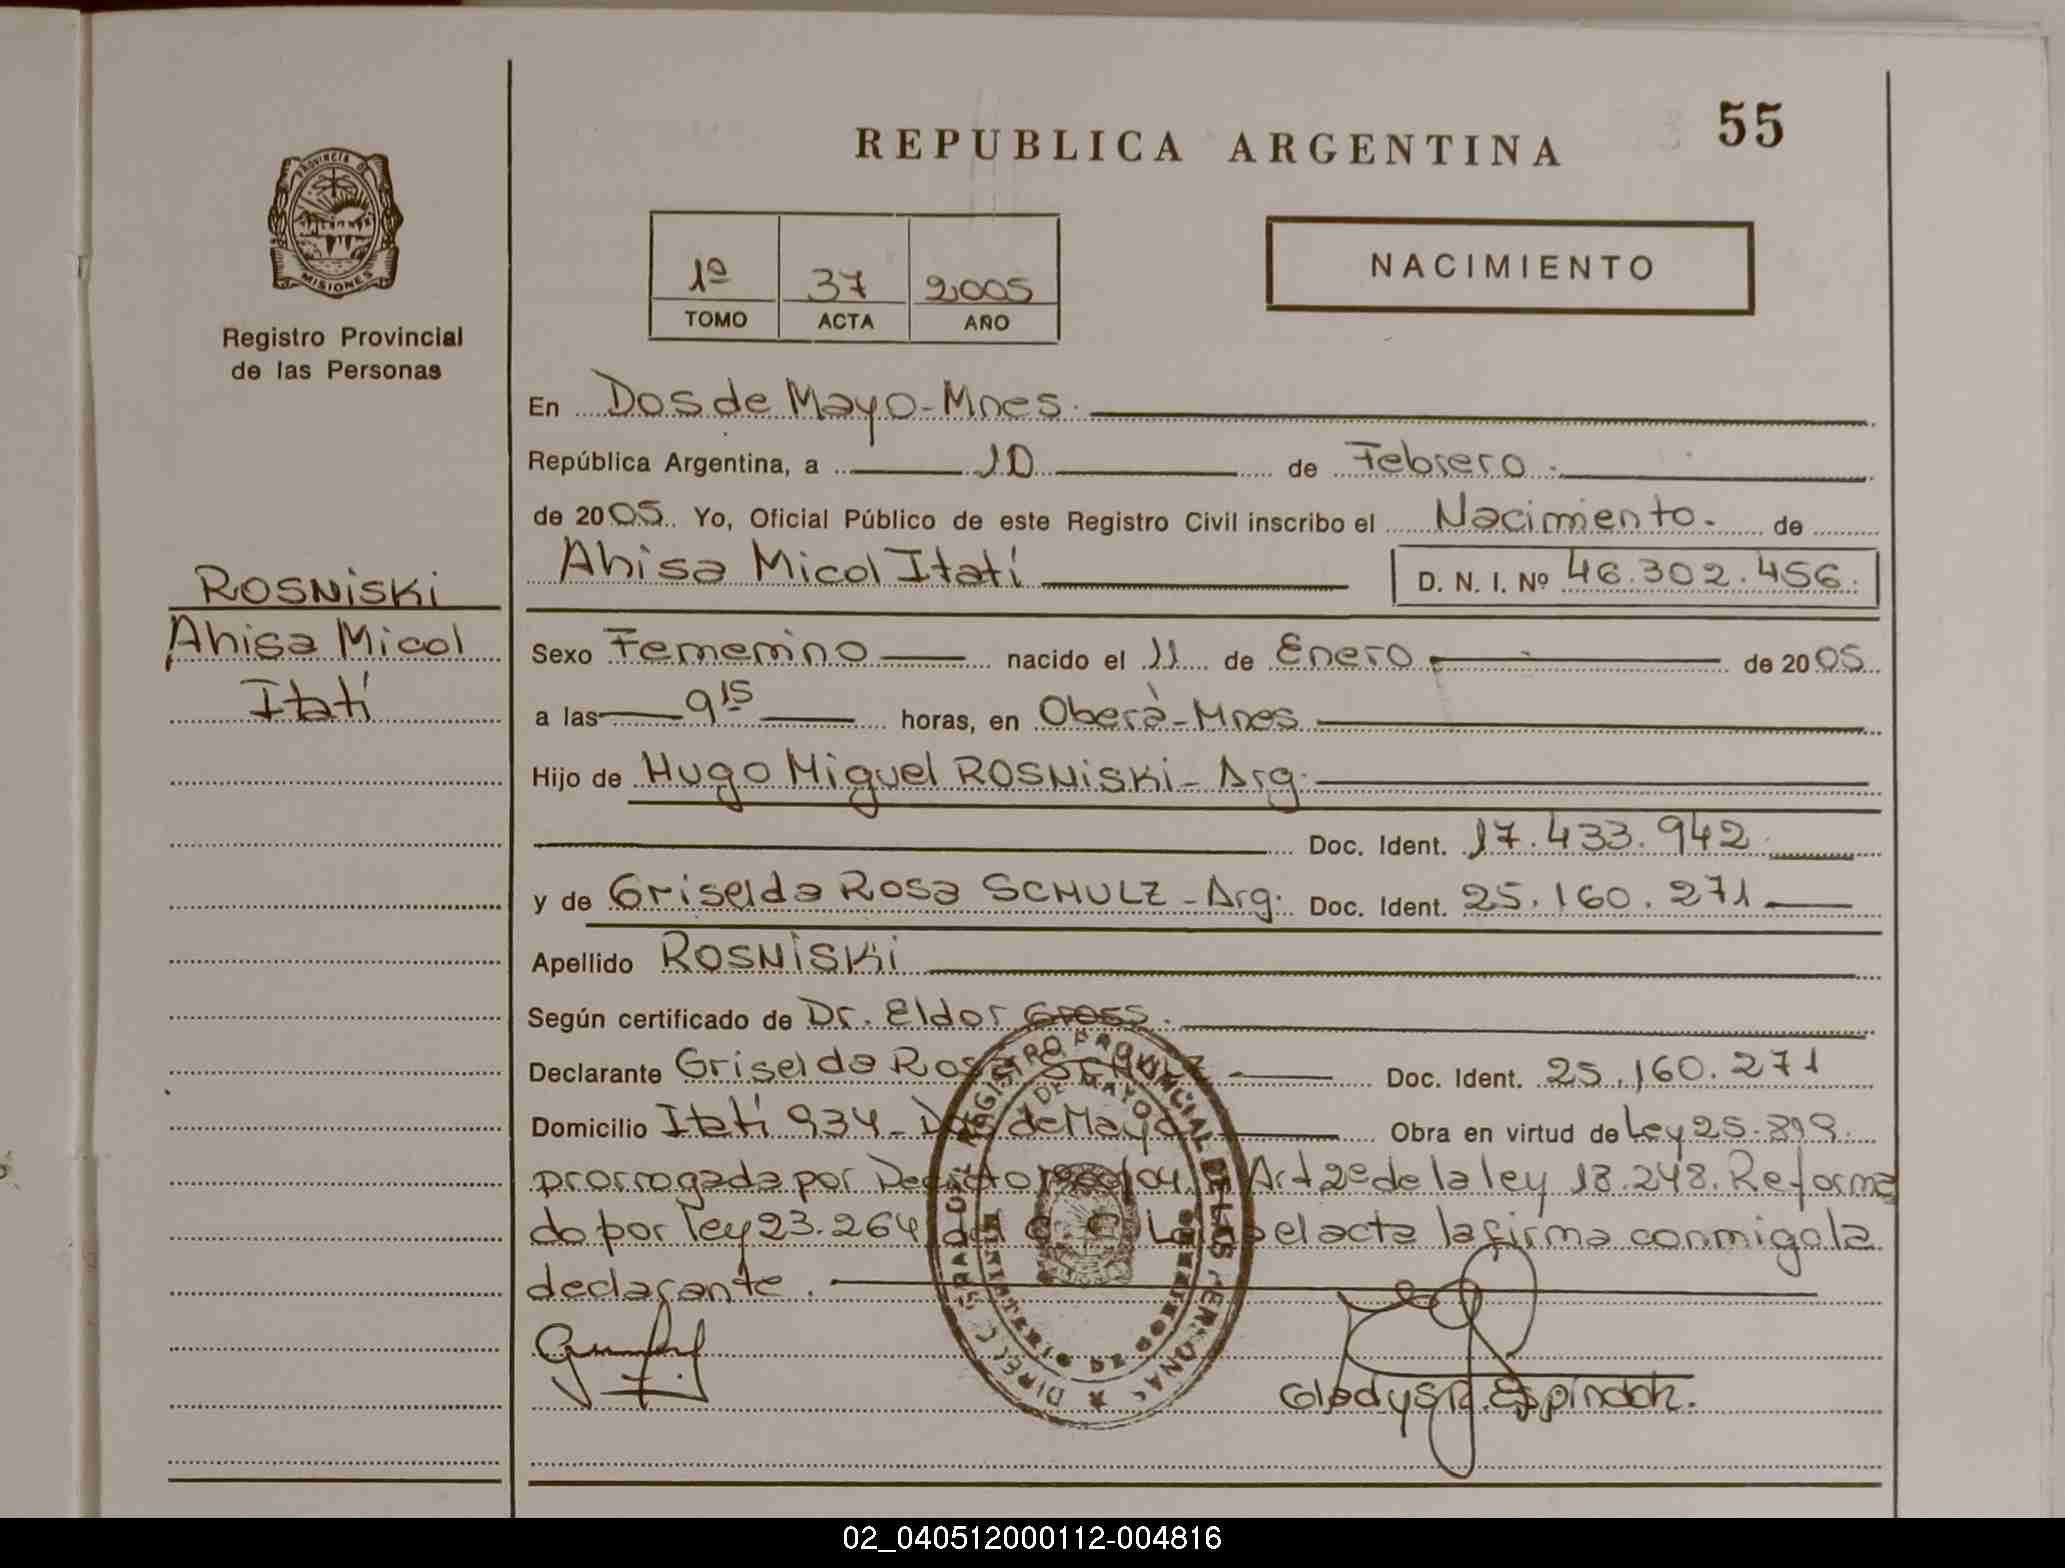 55
REPUBLICA ARGENTINA
PROVINCIA DE
MISIONES
Registro Provincial
de las Personas
1º 37 2005
TOMO ACTA AÑO
NACIMIENTO
En Dos de Mayo - Mnes.
República Argentina, a 10 de Febrero.
de 2005. Yo, Oficial Público de este Registro Civil inscribo el Nacimiento. de
Ahisa Micol Itatí D. N. I. Nº 46.302.456.
ROSNISKI
Ahisa Micol
Itatí
Sexo Femenino nacido el 11 de Enero de 2005
a las 9 15 horas, en Oberà - Mnes
Hijo de Hugo Miguel ROSNISKI - Arg.
Doc. Ident. 17.433.942
y de Griselda Rosa SCHULZ - Arg. Doc. Ident. 25.160.271
Apellido ROSNISKI
Según certificado de Dr. Eldor Gross.
Declarante Griselda Rosa SCHULZ Doc. Ident. 25.160.271
Domicilio Itatí 934 - Dos de Mayo Obra en virtud de Ley 25.819.
prorrogada por Decreto Art 2º de la ley 18.248. Reforma
do por ley 23.264 del C. C. el acta la firma conmigo la
declarante.
Gladys R. Espíndola.
REGISTRO PROVINCIAL DE LAS PERSONAS
DOS DE MAYO
MISIONES
02_040512000112-004816